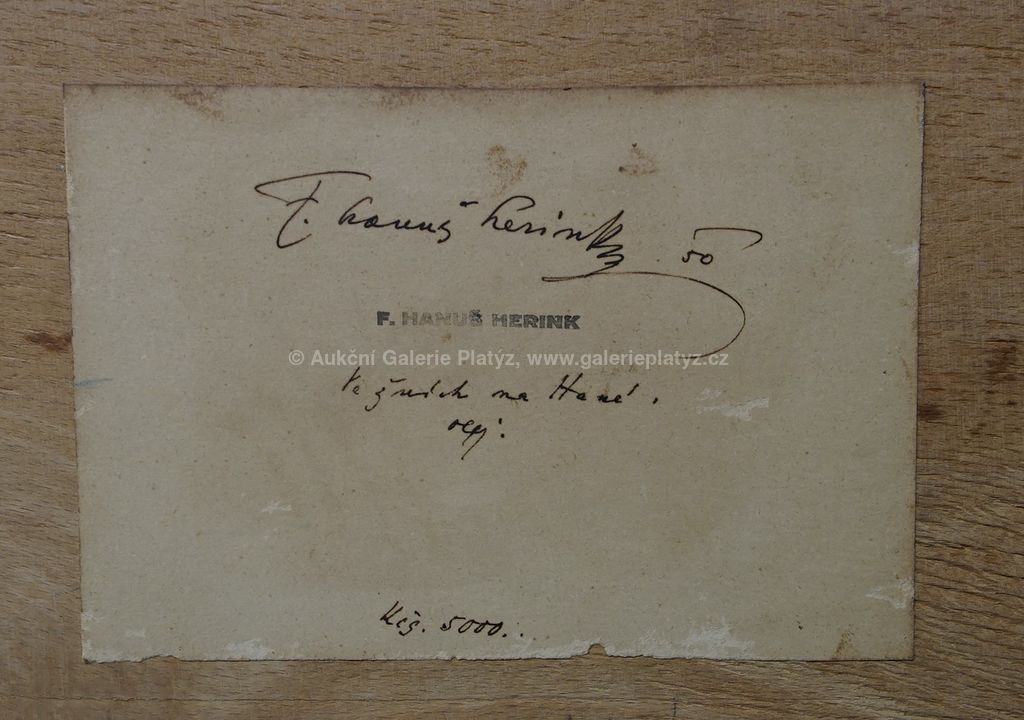 F. Hanuš Herink 50
F. HANUŠ HERINK
© Aukční Galerie Platýz, www.galerieplatyz.cz
Ve žních na Hané.
olej.
Kčs. 5000..